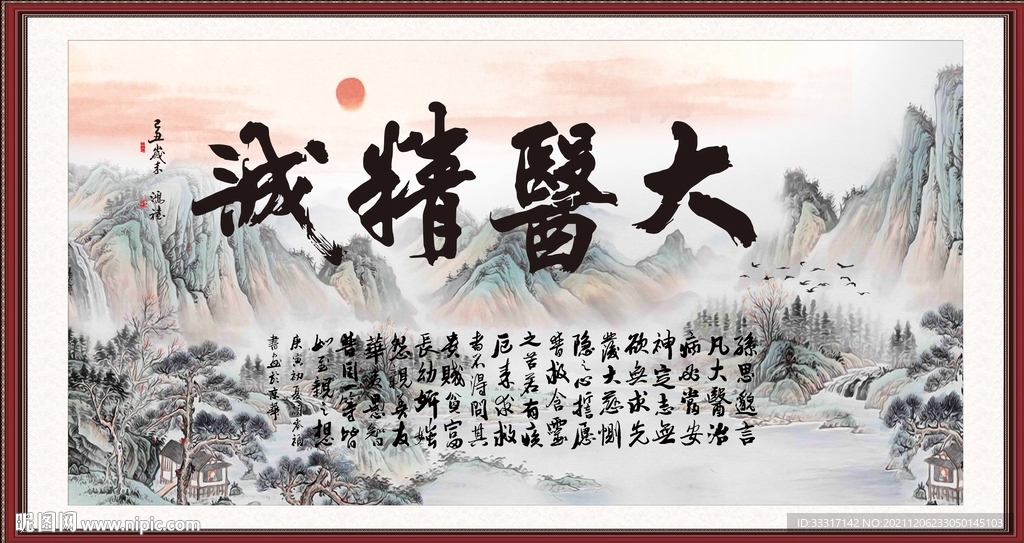 大醫精誠
孫思邈言
凡大醫治
病必當安
神定志無
欲無求先
發大慈惻
隱之心誓愿
普救含靈
之苦若有疾
厄来求救
者不得問其
貴賤貧富
長幼妍媸
怨親善友
華夷愚智
普同一等皆
如至親之想
庚寅初夏
書画於京華
己丑歲末
昵图网 www.nipic.com
ID:33317142 NO:20211206233050145103